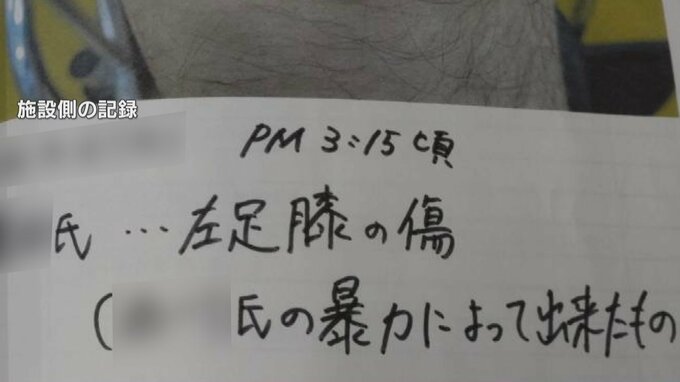 施設側の記録
PM 3:15 頃
氏 … 左足膝の傷
( 氏の暴力によって出来たもの